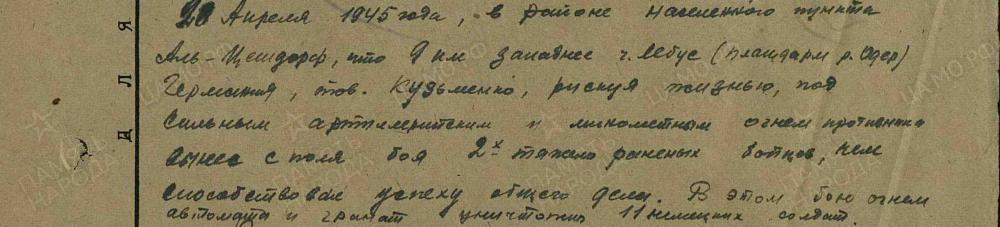 20 Апреля 1945 года, в районе населенного пункта
Аль-Цешдорф, что 9 км западнее г. Лебус (плацдарм р. Одер)
Германия, тов. Кузьменко, рискуя жизнью, под
сильным артиллерийским и минометным огнем противника
вынес с поля боя 2х тяжело раненых бойцов, чем
способствовал успеху общего дела. В этом бою огнем
автомата и гранат уничтожил 11 немецких солдат.
Д Л Я
ПАМЯТЬ НАРОДА
ЦАМО РФ